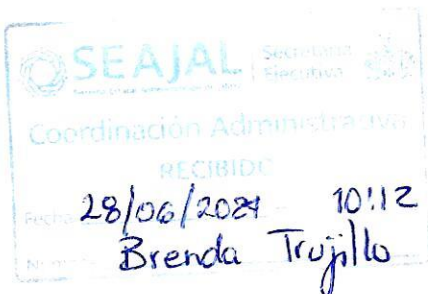 SEAJAL Secretaría Ejecutiva
Coordinación Administrativa
RECIBIDO
Fecha 28/06/2021 10:12
Brenda Trujillo